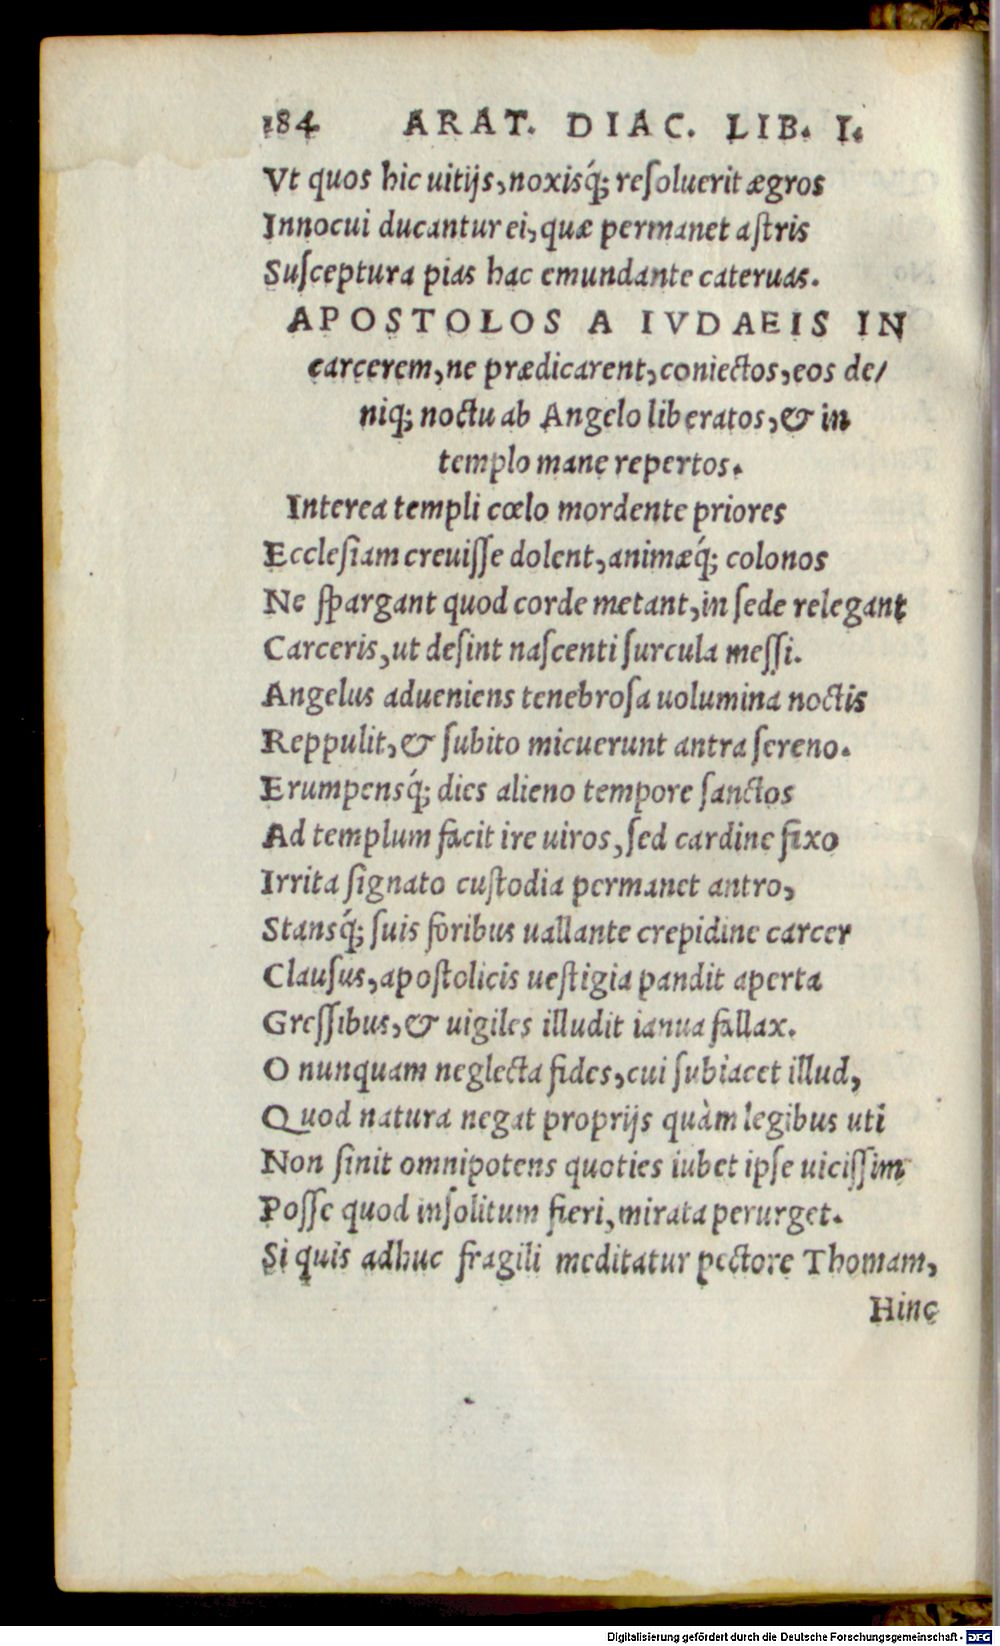 184 ARAT. DIAC. LIB. I.
Vt quos hic uitijs, noxisq́; reſoluerit ægros
Innocui ducantur ei, quæ permanet aſtris
Suſceptura pias hac emundante cateruas.
APOSTOLOS A IVDAEIS IN
carcerem, ne prædicarent, coniectos, eos de/
niq; noctu ab Angelo liberatos, & in
templo mane repertos.
Interea templi cœlo mordente priores
Eccleſiam creuiſſe dolent, animæq́; colonos
Ne ſpargant quod corde metant, in ſede relegant
Carceris, ut deſint naſcenti ſurcula meſſi.
Angelus adueniens tenebroſa uolumina noctis
Reppulit, & ſubito micuerunt antra ſereno.
Erumpensq́; dies alieno tempore ſanctos
Ad templum facit ire uiros, ſed cardine fixo
Irrita ſignato cuſtodia permanet antro,
Stansq́; ſuis foribus uallante crepidine carcer
Clauſus, apoſtolicis ueſtigia pandit aperta
Greſſibus, & uigiles illudit ianua fallax.
O nunquam neglecta fides, cui ſubiacet illud,
Quod natura negat proprijs quàm legibus uti
Non ſinit omnipotens quoties iubet ipſe uiciſſim
Poſſe quod inſolitum fieri, mirata perurget.
Si quis adhuc fragili meditatur pectore Thomam,
Hinc
Digitalisierung gefördert durch die Deutsche Forschungsgemeinschaft - DFG